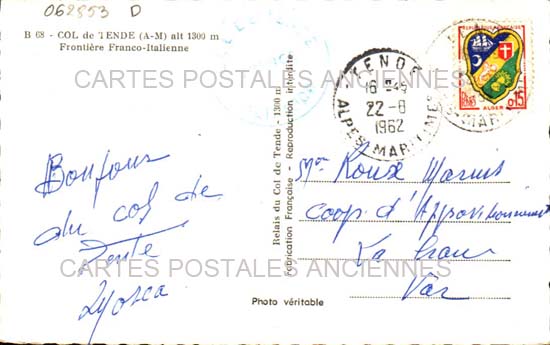 062853 D
B 68 - COL de TENDE (A-M) alt 1300 m
Frontière Franco-Italienne
CARTES POSTALES ANCIENNES
TENDE
16 H 45
22-8
1962
ALPES MARITIMES
REPUBLIQUE FRANÇAISE
POSTES
0,15
ALGER
Relais du Col de Tende - 1300 m
Fabrication Française - Reproduction interdite
Bonjour
du col de
Tente
Mr Roux Marius
Coop. d'Approvisionnement
La Crau
Var
CARTES POSTALES ANCIENNES
Photo véritable